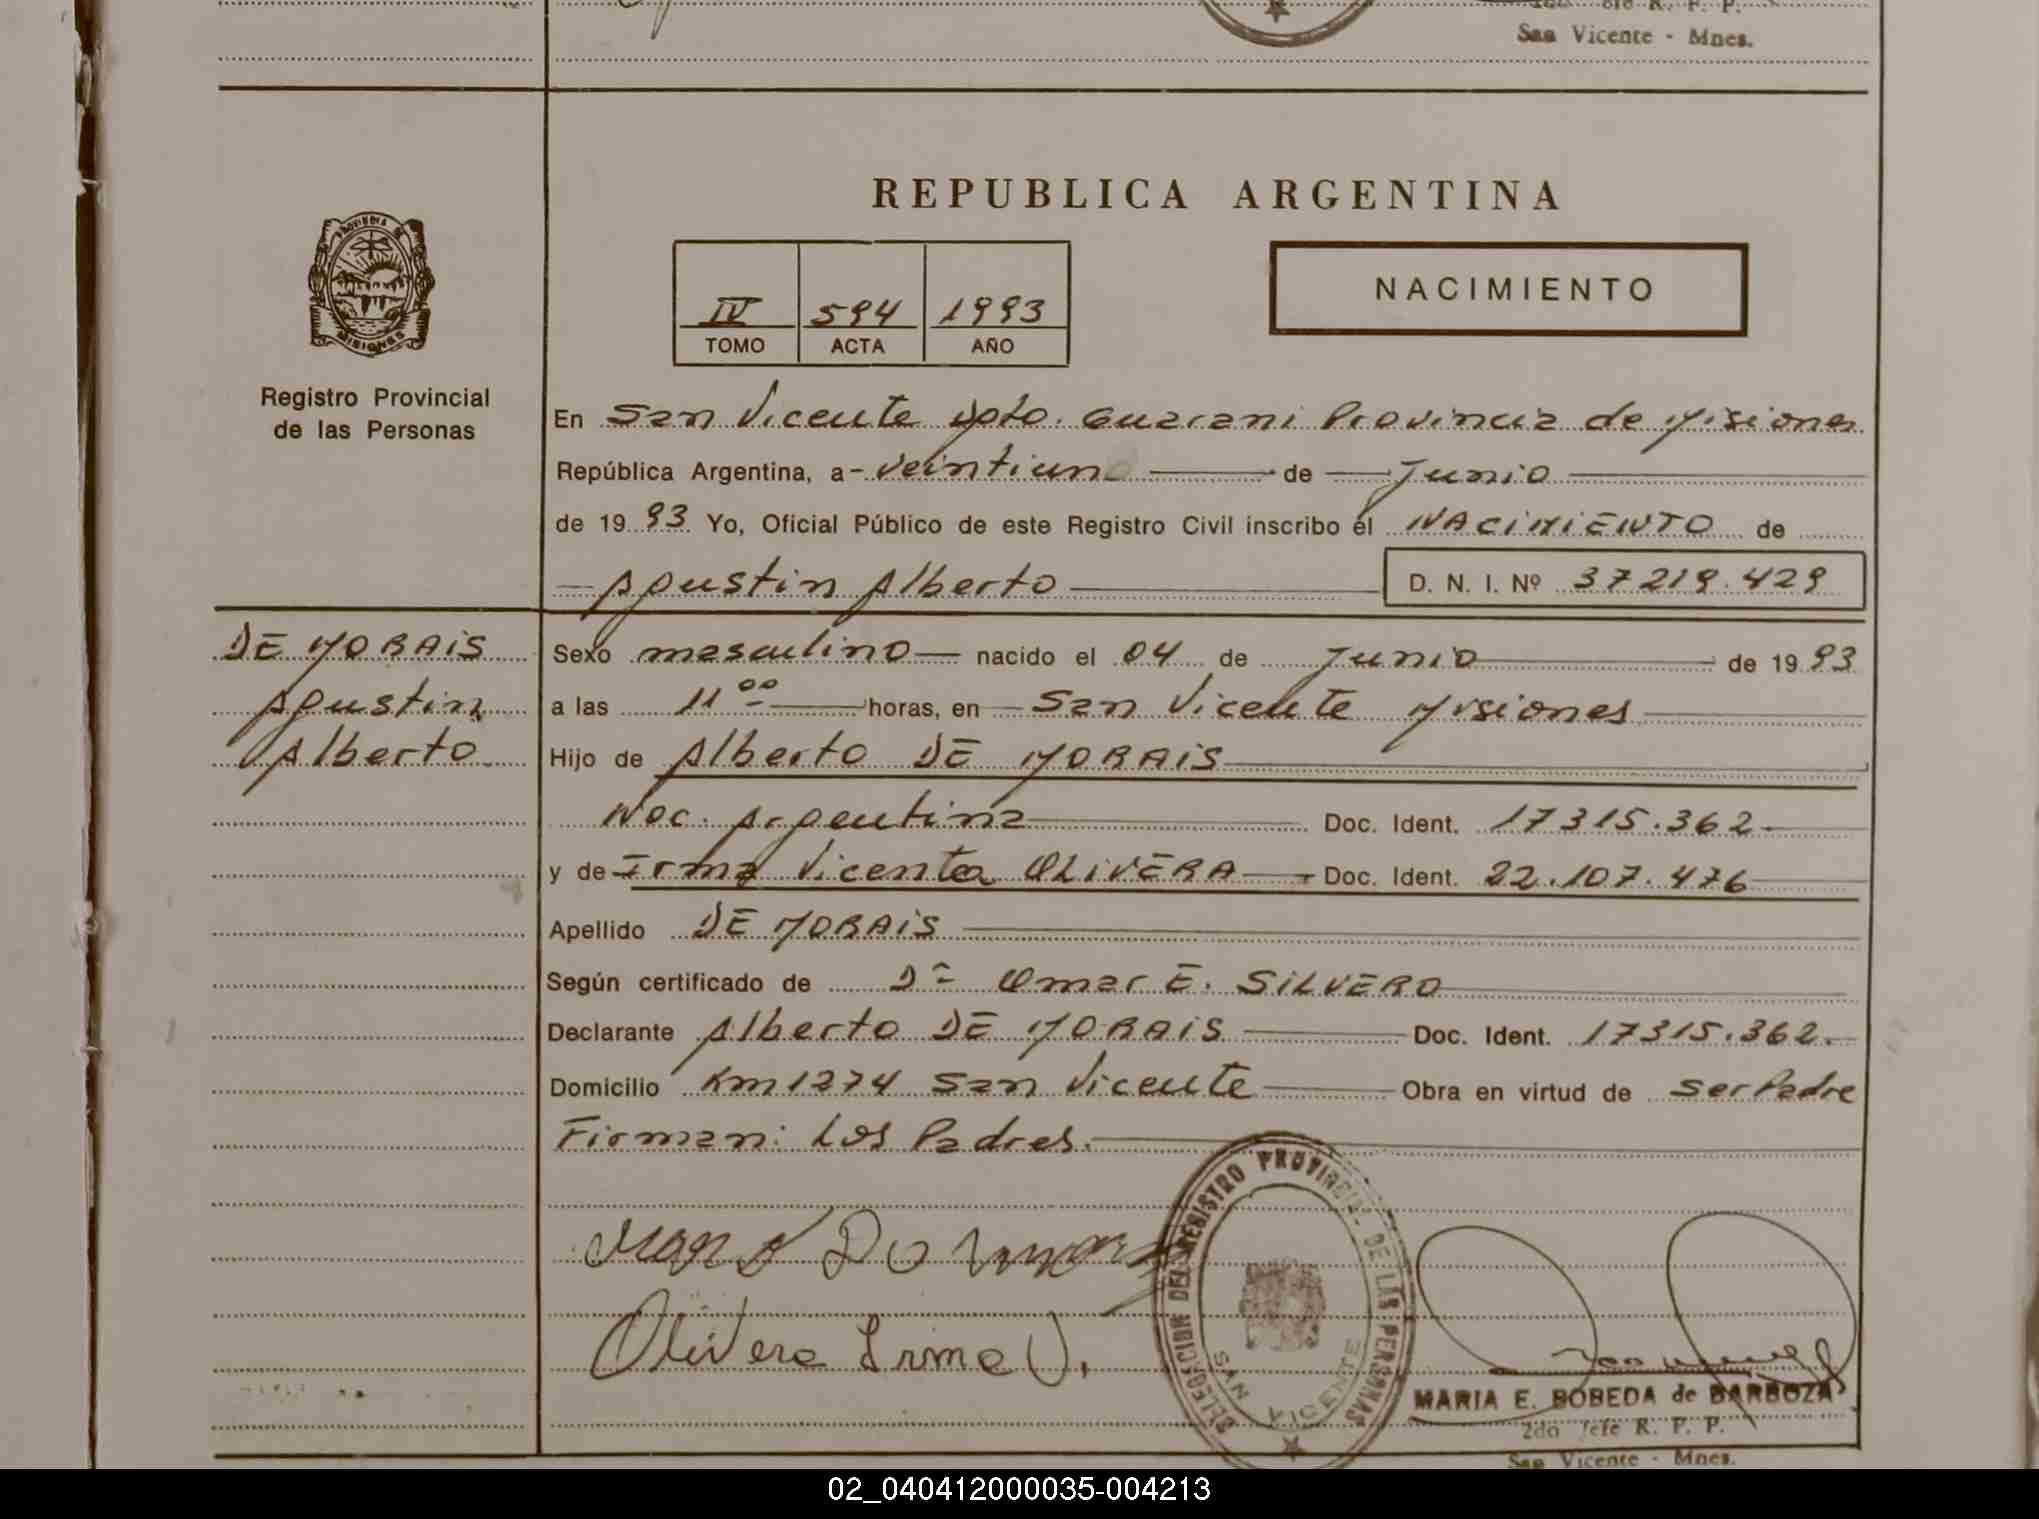 2do Jefe R. P. P.
San Vicente - Mnes.
REPUBLICA ARGENTINA
PROVINCIA DE MISIONES
IV 594 1993
TOMO ACTA AÑO
NACIMIENTO
Registro Provincial
de las Personas
En San Vicente Dpto. Guarani Provincia de Misiones
República Argentina, a - veintiuno de Junio
de 1993 Yo, Oficial Público de este Registro Civil inscribo el NACIMIENTO de
Agustin Alberto D. N. I. Nº 37219.429
DE MORAIS
Agustin
Alberto
Sexo masculino nacido el 04 de Junio de 1993
a las 11 00 horas, en San Vicente Misiones
Hijo de Alberto DE MORAIS
Nac. Argentina Doc. Ident. 17315.362
y de Irma Vicenta OLIVERA Doc. Ident. 22.107.476
Apellido DE MORAIS
Según certificado de Dr Omar E. SILVERO
Declarante Alberto DE MORAIS Doc. Ident. 17315.362.
Domicilio Km 1274 San Vicente Obra en virtud de ser Padre
Firman: Los Padres.
Olivera Irma V.
DELEGACION DEL REGISTRO PROVINCIAL DE LAS PERSONAS
SAN VICENTE
MARIA E. BOBEDA de BARBOZA
2do Jefe R. P. P.
San Vicente - Mnes.
02_040412000035-004213